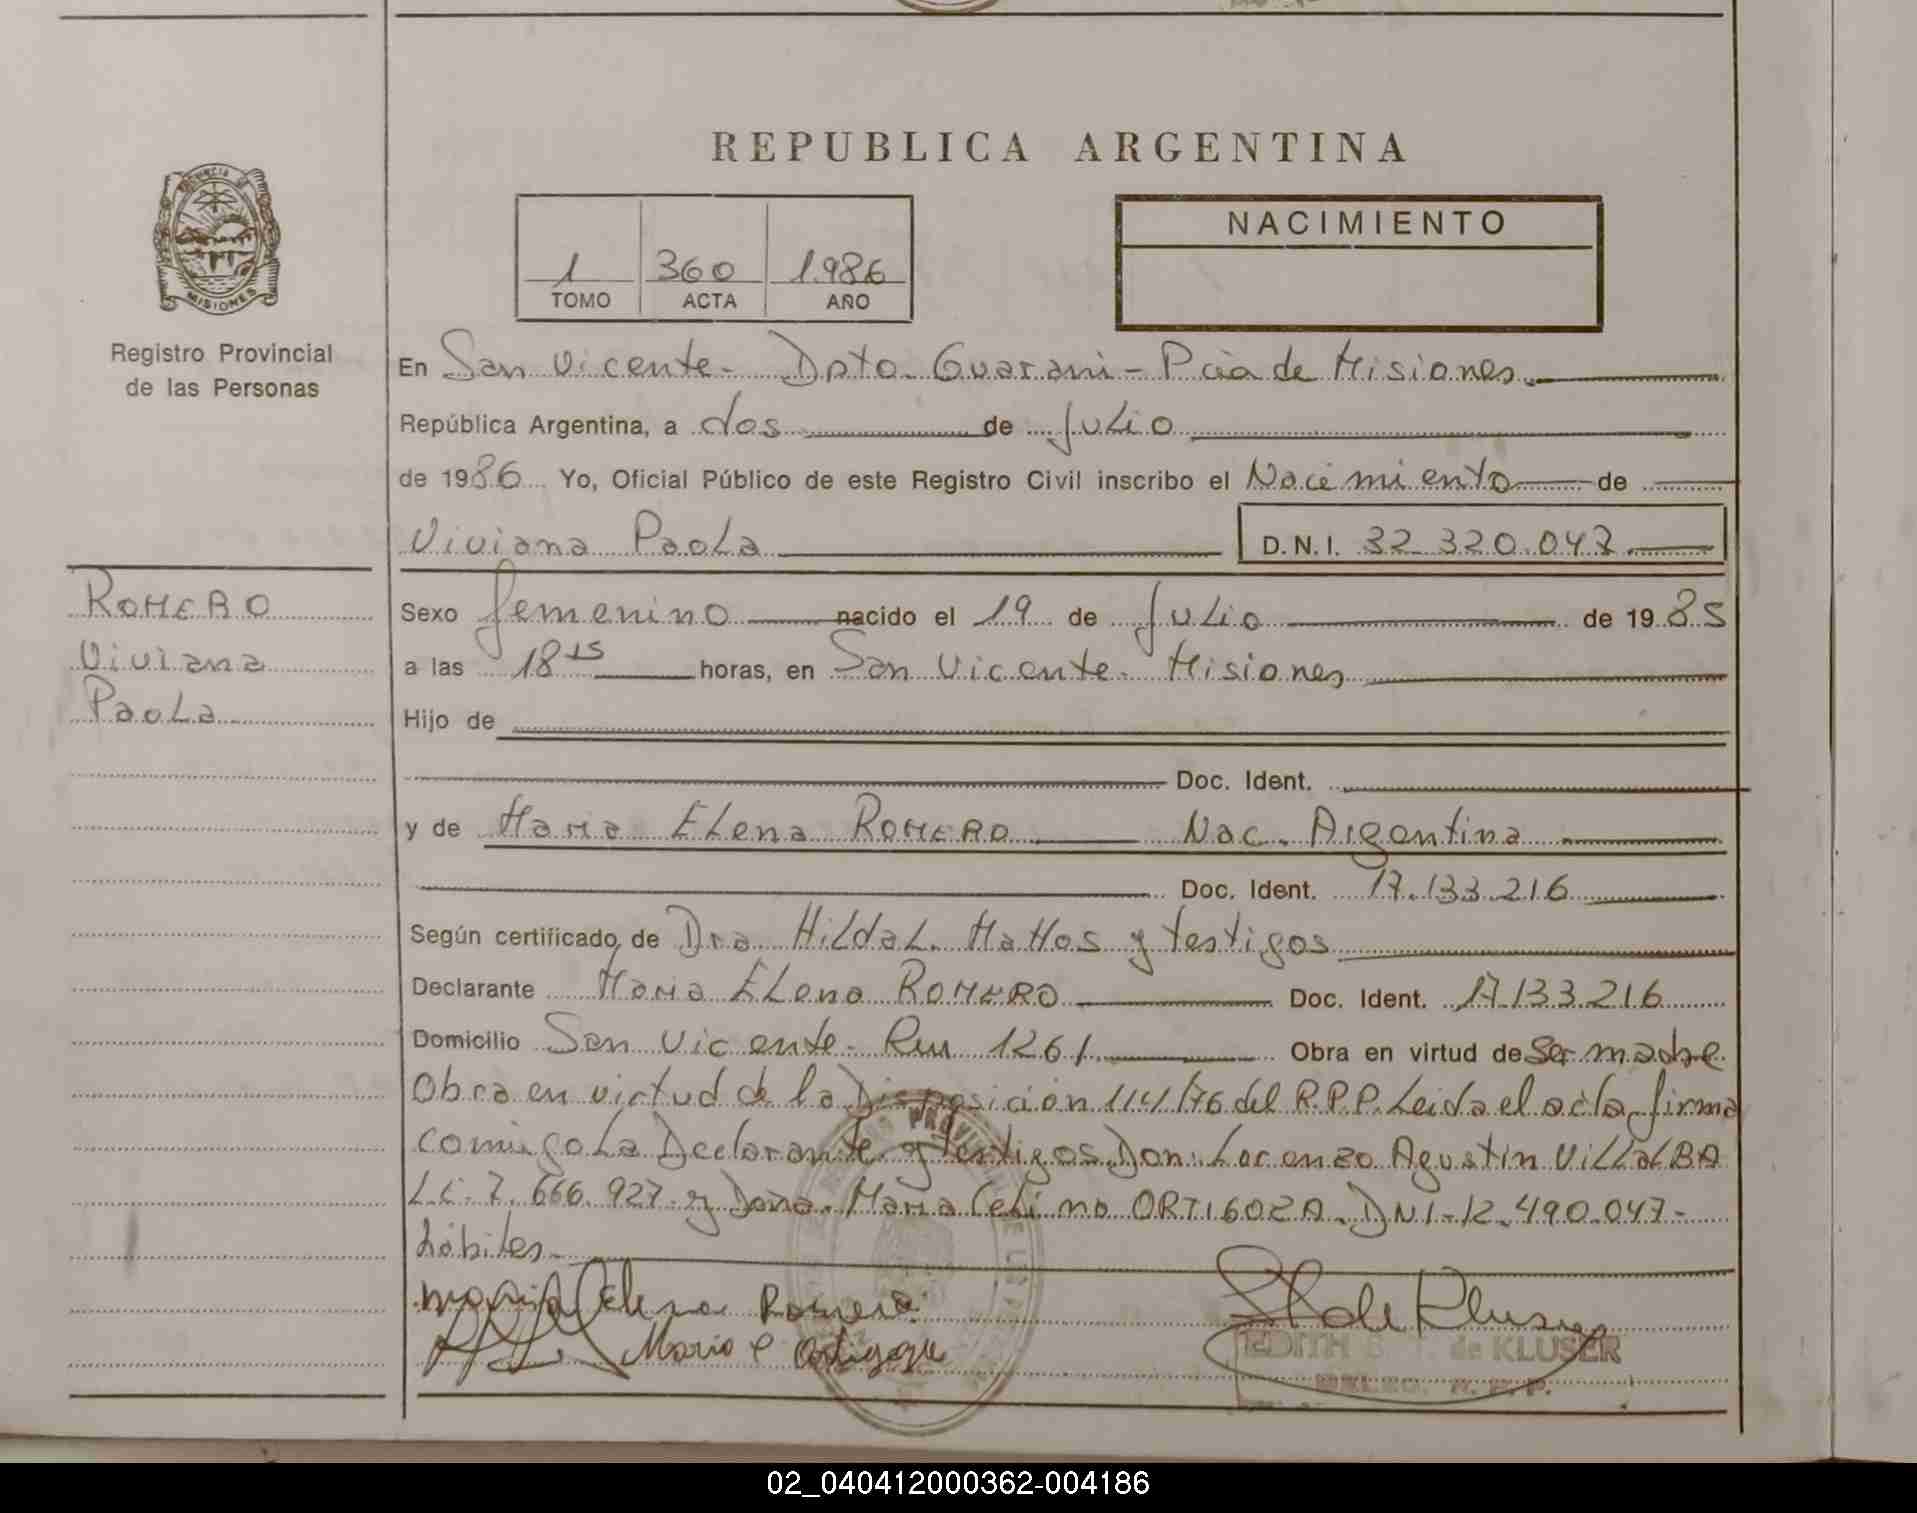 REPUBLICA ARGENTINA
PROVINCIA DE
MISIONES
Registro Provincial
de las Personas
1 360 1.986
TOMO ACTA AÑO
NACIMIENTO
En San Vicente - Dpto. Guarani - Pcia de Misiones.
República Argentina, a dos de Julio
de 1986 Yo, Oficial Público de este Registro Civil inscribo el Nacimiento de
Viviana Paola D.N.I. 32.320.047
ROMERO
Viviana
Paola
Sexo femenino nacido el 19 de Julio de 1985
a las 18 15 horas, en San Vicente - Misiones
Hijo de
Doc. Ident.
y de Maria Elena ROMERO Nac. Argentina
Doc. Ident. 17.133.216
Según certificado de Dra Hilda L. Mattos y testigos
Declarante Maria Elena ROMERO Doc. Ident. 17.133.216
Domicilio San Vicente - Ruu 1261 Obra en virtud de Ser madre
Obra en virtud de la Disposición 114/76 del R.P.P. Leida el acta, firma
comigo La Declarante y testigos Don: Lorenzo Agustin VILLALBA
L.E. 7.666.927 y Doña. Maria Celina ORTIGOZA. DNI - 12.490.047 -
hábiles.
Maria Elena Romero
Maria C Ortigoza
EDITH de KLUSER
DELEG. R. P. P.
02_040412000362-004186